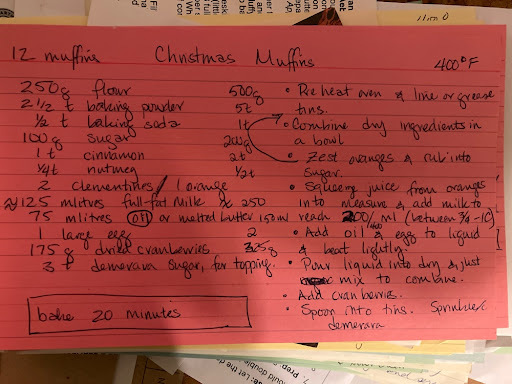 12 muffins Christmas Muffins 400°F
250g flour 500g
2 1/2 t baking powder 5t
1/2 t baking soda 1t
100g sugar 200g
1 t cinnamon 2t
1/4t nutmeg 1/2t
2 clementines / 1 orange
≈125 mlitres full-fat milk 250
75 mlitres oil or melted butter 150ml
1 large egg 2
175g dried cranberries
3 t demerara sugar, for topping
bake 20 minutes
• Preheat oven & line or grease
tins.
• Combine dry ingredients in
a bowl
• Zest oranges & rub into
sugar.
• Squeeze juice from oranges
into measure & add milk to
reach 200/ ml (between 3/4-1C)
• Add oil & egg to liquid
& beat lightly.
• Pour liquid into dry & just
mix to combine.
• Add cranberries.
• Spoon into tins. Sprinkle
demerara